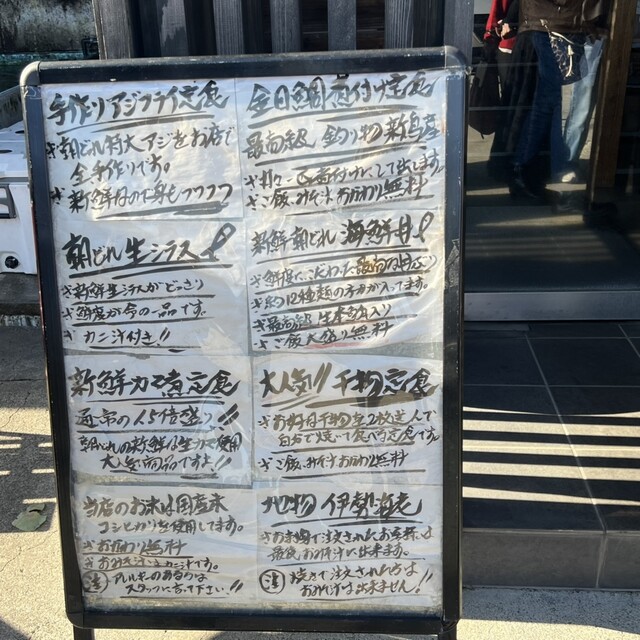 手作りアジフライ定食
※朝どれ特大アジをお店で
全手作りです。
※新鮮な
朝どれ生シラス丼
※新鮮生シラスがどっさり
※鮮度が命の一品です。
※カニ汁付き!!
新鮮カマ煮定食
通常の1.5倍盛り!!
朝どれの新鮮な生カマ使用
大人気商品ですよ!!
当店のお米は国産米
コシヒカリを使用してます。
※おかわり無料
※おみそ汁はカニ汁です。
注 アレルギーのある方は
スタッフに言って下さい!!
金目鯛煮付け定食
最高級 釣り物 新島産
煮付けにして出します。
※ご飯、みそ汁おかわり無料
新鮮朝どれ 海鮮丼
※鮮度にこだわった最高の
※約12種類の方力が入ってます。
※最高級 生本マグロ入り
※ご飯大盛り無料
大人気!! 干物定食
※お好きな干物を2枚選んで
自分で焼いて食べる定食です。
※ご飯、みそ汁おかわり無料
地物 伊勢海老
※お刺身で注文されたお客様は
最後おみそ汁に出来ます。
注 焼きで注文された方は
おみそ汁は出来ません!!